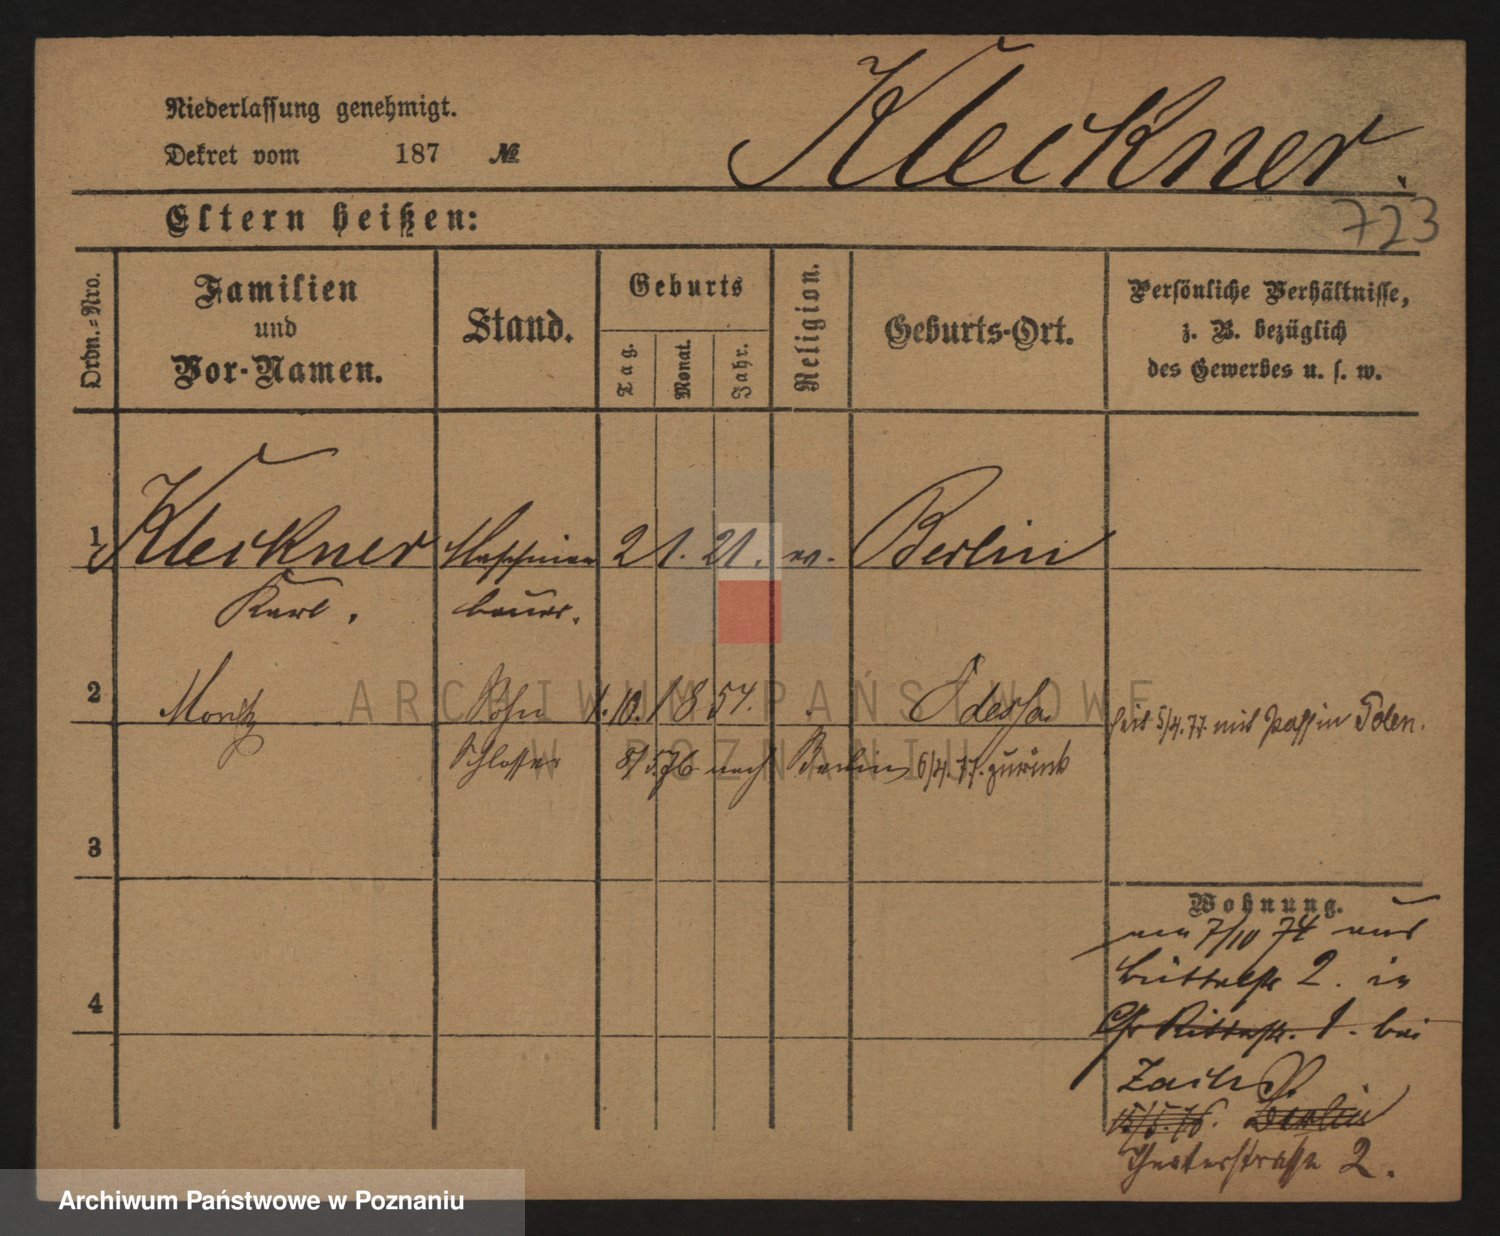 Niederlassung genehmigt.
Dekret vom 187 №
Kleckner.
723
Eltern heißen:
Ordn.-Nro.
Familien
und
Vor-Namen.
Stand.
Geburts
Tag.
Monat.
Jahr.
Religion.
Geburts-Ort.
Persönliche Verhältnisse,
z. B. bezüglich
des Gewerbes u. s. w.
1 Kleckner Maschinen 21. 21. ev. Berlin
Karl. bauer.
2 Moritz Sohn 1. 10. 1854. Odessa. seit 5/4.77 mit Pass in Polen.
Schlosser 8/5.76 nach Berlin 6/4.77. zurück
3
4
Wohnung.
7/10 74 aus
Büttelstr 2. in
Gr Ritterstr. 1. bei
15/5.76. Berlin
Theaterstrasse 2.
ARCHIWUM PAŃSTWOWE
W POZNANIU
Archiwum Państwowe w Poznaniu